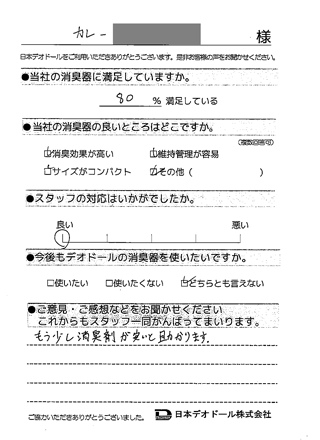 カレー 様
日本デオドールをご利用いただきありがとうございます。是非お客様の声をお聞かせください。
●当社の消臭器に満足していますか。
80 % 満足している
●当社の消臭器の良いところはどこですか。
(複数回答可)
☑消臭効果が高い ☑維持管理が容易
☑サイズがコンパクト ☑その他 ( )
●スタッフの対応はいかがでしたか。
良い 悪い
●今後もデオドールの消臭器を使いたいですか。
□使いたい □使いたくない ☑どちらとも言えない
●ご意見・ご感想などをお聞かせください
これからもスタッフ一同がんばってまいります。
もう少し消臭剤が安いと助かります。
ご協力いただきありがとうございました。 日本デオドール株式会社